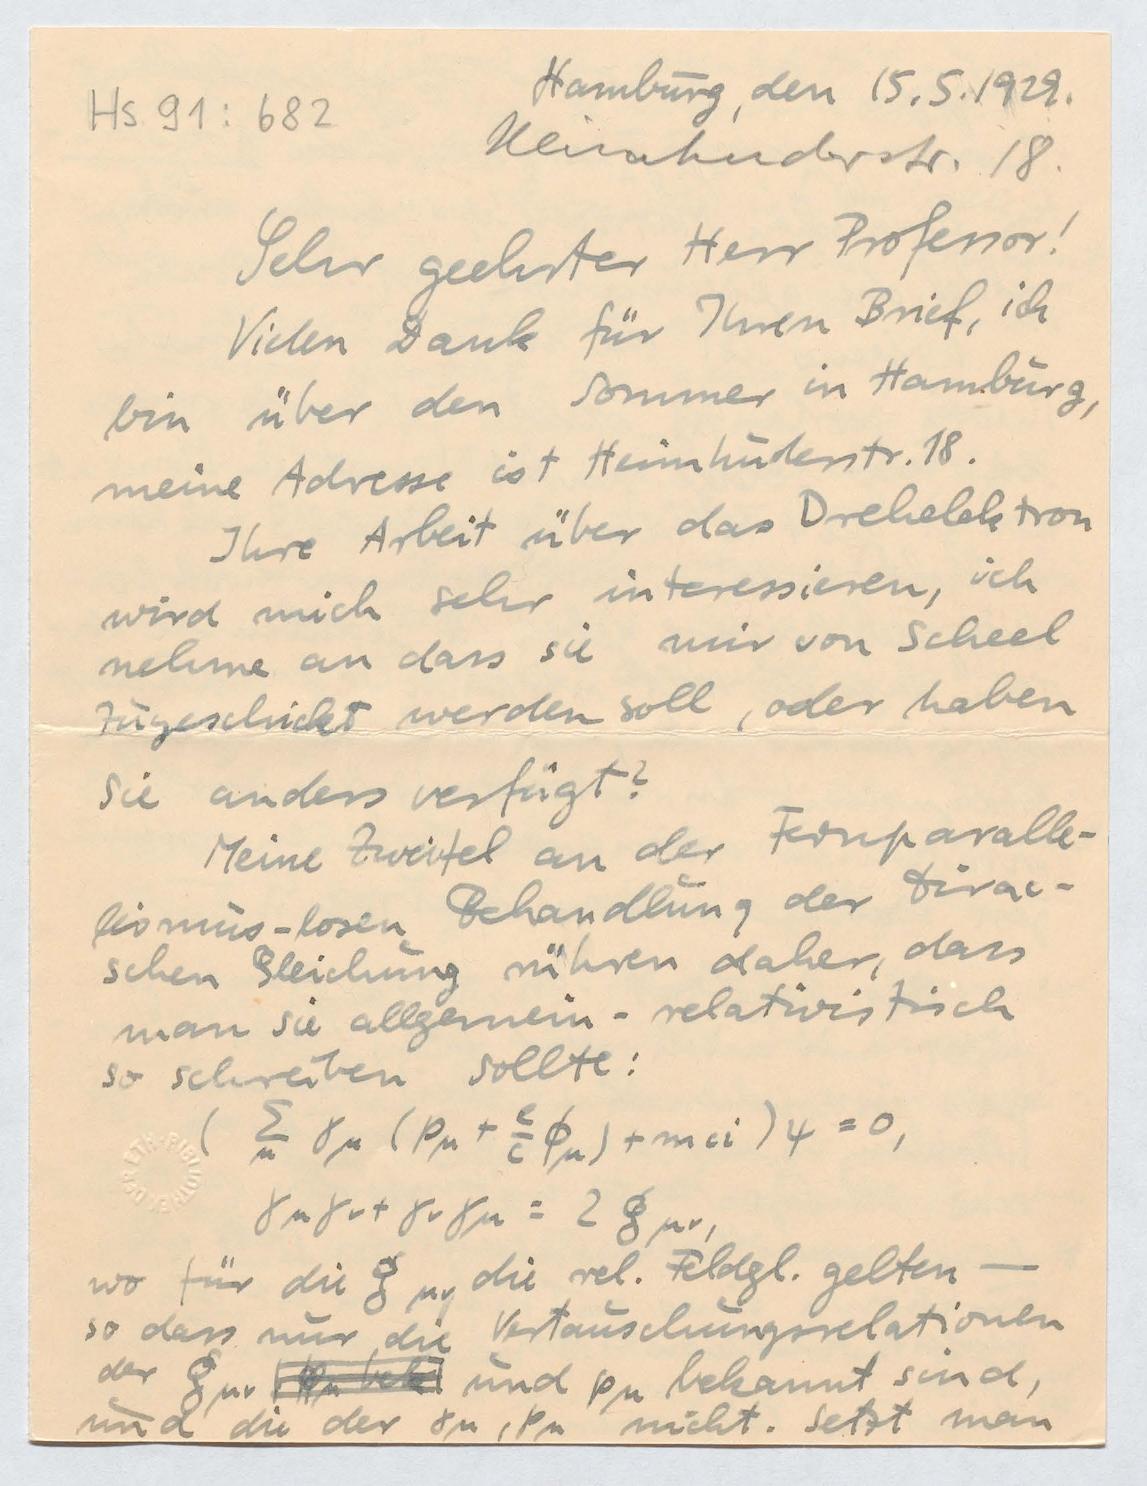 Hs 91: 682
Hamburg, den 15.5.1929.
Heimhuderstr. 18.
Sehr geehrter Herr Professor!
Vielen Dank für Ihren Brief, ich
bin über den Sommer in Hamburg,
meine Adresse ist Heimhuderstr. 18.
Ihre Arbeit über das Drehelektron
wird mich sehr interessieren, ich
nehme an dass sie mir von Scheel
zugeschickt werden soll, oder haben
Sie anders verfügt?
Meine Zweifel an der Fernparalle-
lismus-losen Behandlung der Dirac-
schen Gleichung rühren daher, dass
man sie allgemein-relativistisch
so schreiben sollte:
( ∑μ γμ (pμ + e/c ϕμ) + mci ) ψ = 0,
γμγν + γνγμ = 2 gμν,
wo für die gμν die rel. Feldgl. gelten —
so dass nur die Vertauschungsrelationen
der gμν und pμ bekannt sind,
und die der γμ, pμ nicht. Setzt man
ETH-BIBLIOTHEK